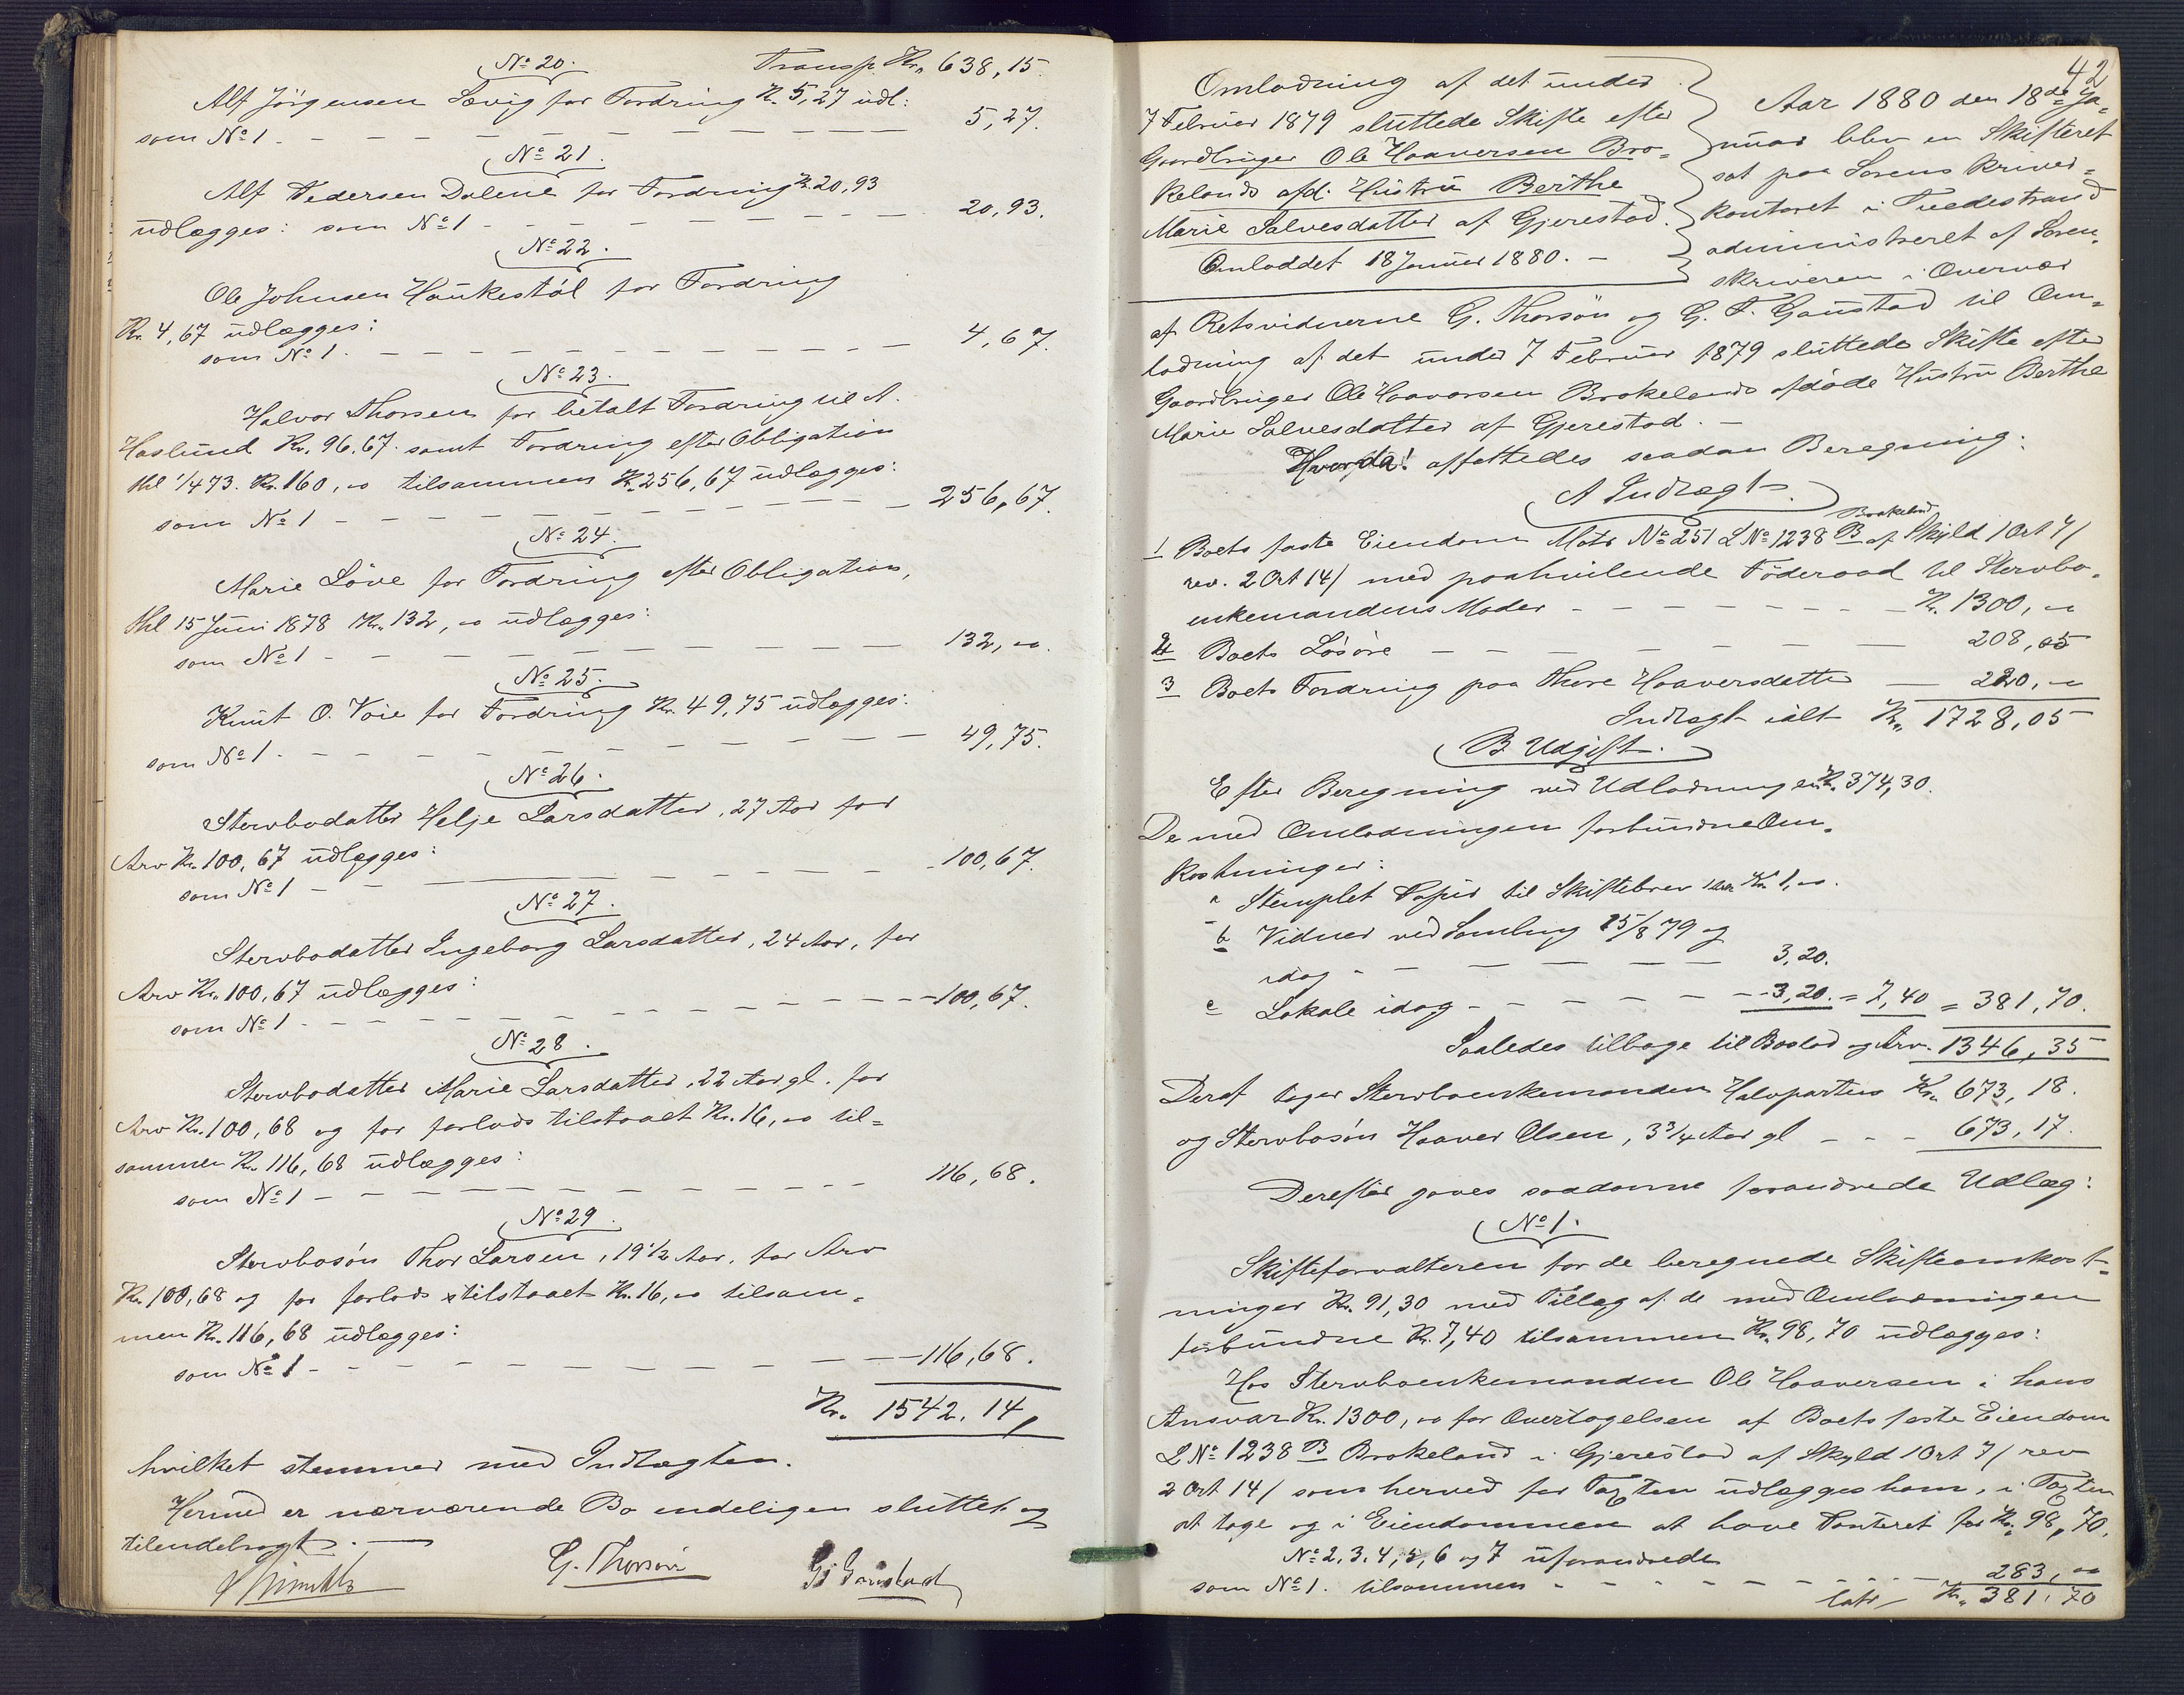 No 20. Transp. Kr. 638,15.
Alf Jörgensen Sævig for Fordring Kr. 5,27 udl:
som No 1 - 5,27.
No 21.
Alf Pedersen Dalene for Fordring Kr. 20,93
udlægges: som No 1 - 20,93.
No 22.
Ole Johnsen Haukestöl for Fordring
Kr. 4,67 udlægges:
som No 1. - 4,67.
No 23.
Halvor Thorsen for betalt Fordring til A.
Haslund Kr. 96.67. samt Fordring efter Obligation
thl 1/4 73. Kr. 160,00 tilsammen Kr. 256,67 udlægges:
som No 1 - 256,67.
No 24.
Marie Löve for Fordring efter Obligation,
thl 15 Juni 1878 Kr. 132,00 udlægges:
som No 1 - 132,00.
No 25.
Knut O. Voie for Fordring Kr. 49,75 udlægges:
som No 1. - 49,75.
No 26.
Stervbodatter Helje Larsdatter, 27 Aar for
Arv Kr. 100,67 udlægges:
som No 1 - 100,67.
No 27.
Stervbodatter Ingeborg Larsdatter, 24 Aar, for
Arv Kr. 100,67 udlægges:
som No 1. - 100,67.
No 28.
Stervbodatter Marie Larsdatter, 22 Aar gl. for
Arv Kr. 100,68 og for forlods tilstaaet Kr. 16,00 til=
sammen Kr. 116,68 udlægges:
som No 1 - 116,68.
No 29.
Stervbosön Thor Larsen, 19 1/2 Aar, for Arv
Kr. 100,68 og for forlods tilstaaet Kr. 16,00 tilsam=
men Kr. 116,68 udlægges:
som No 1 - 116,68.
Kr. 1542.14,
hvilket stemmer med Indtægten.
Hermed er nærværende Bo endeligen sluttet og
tilendebragt. -
G. Thorsön G. Gaustad
42
Omlodning af det under
7 Februar 1879 sluttede Skifte efter
Gaardbruger Ole Haaversen Bro=
kelands afd. Hustru Berthe
Marie Salvesdatter af Gjerestad.
Omloddet 18 Januar 1880. -
Aar 1880 den 18de Ja=
nuar blev en Skifteret
sat paa Sorenskriver=
kontoret i Tvedestrand
administreret af Soren=
skriveren i Overvær
af Retsvidnerne G. Thorsön og G. T. Gaustad til Om=
lodning af det under 7 Februar 1879 sluttede Skifte efter
Gaardbruger Ole Haaversen Brokelands afdöde Hustru Berthe
Marie Salvesdatter af Gjerestad. -
Hvorda! affattedes saadan Beregning:
A Indtægt.
Brokeland
1 Boets faste Eiendom Matr No 251 L No 1238 B af Skyld 1 Ort 7/
rev. 2 Ort 14/ med paahvilende Föderaad til Stervbo=
enkemandens Moder - Kr. 1300,00
2 Boets Lösöre - 208,05
3 Boets Fordring paa Thore Haaversdatter - 220,00
Indtægt ialt Kr. 1728,05
B Udgift.
Efter Beregning ved Udlodningen Kr. 374,30.
De med Omlodningen forbundne Om=
kostninger:
a Stemplet Papir til Skiftebrev Kr. 1,00.
b Vidner ved Samling 15/8 79 og
idag - 3,20.
c Lokale idag - 3,20. = 7,40 = 381,70.
Saaledes tilbage til Boslod og Arv. 1346,35
Deraf tager Stervboenkemanden Halvparten Kr. 673,18.
og Stervbosön Haaver Olsen, 3 3/4 Aar gl - 673,17.
Derefter gaves saadanne forandrede Udlæg:
No 1.
Skifteforvalteren for de beregnede Skifteomkost=
ninger Kr. 91,30 med Tillæg af de med Omlodningen
forbundne Kr. 7,40 tilsammen Kr. 98,70 udlægges:
Hos Stervboenkemanden Ole Haaversen i hans
Ansvar Kr. 1300,00 for Overtagelsen af Boets faste Eiendom
L No 1238 B Brokeland i Gjerestad af Skyld 1 Ort 7/ rev
2 Ort 14/ som herved for Taxten udlægges ham, i Taxten
at tage og i Eiendommen at have Panteret for Kr. 98,70.
No 2, 3, 4, 5, 6 og 7 uforandrede
som No 1. tilsammen - 283,00
Lats Kr. 381,70